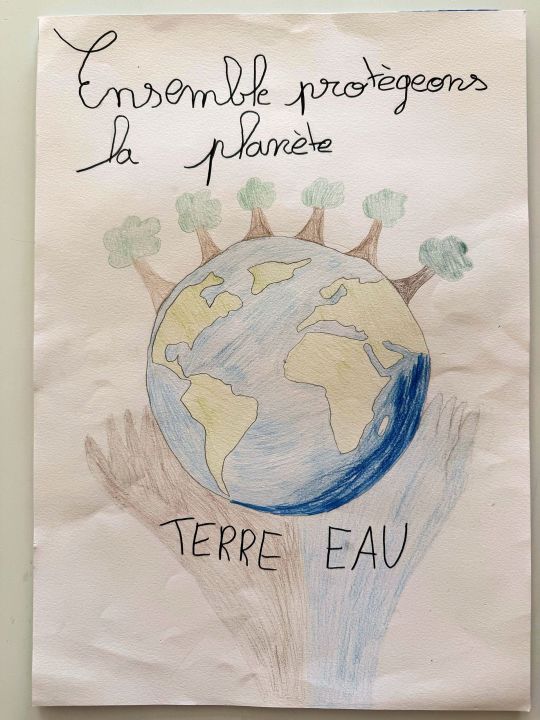 Ensemble protègeons
la planète
TERRE EAU